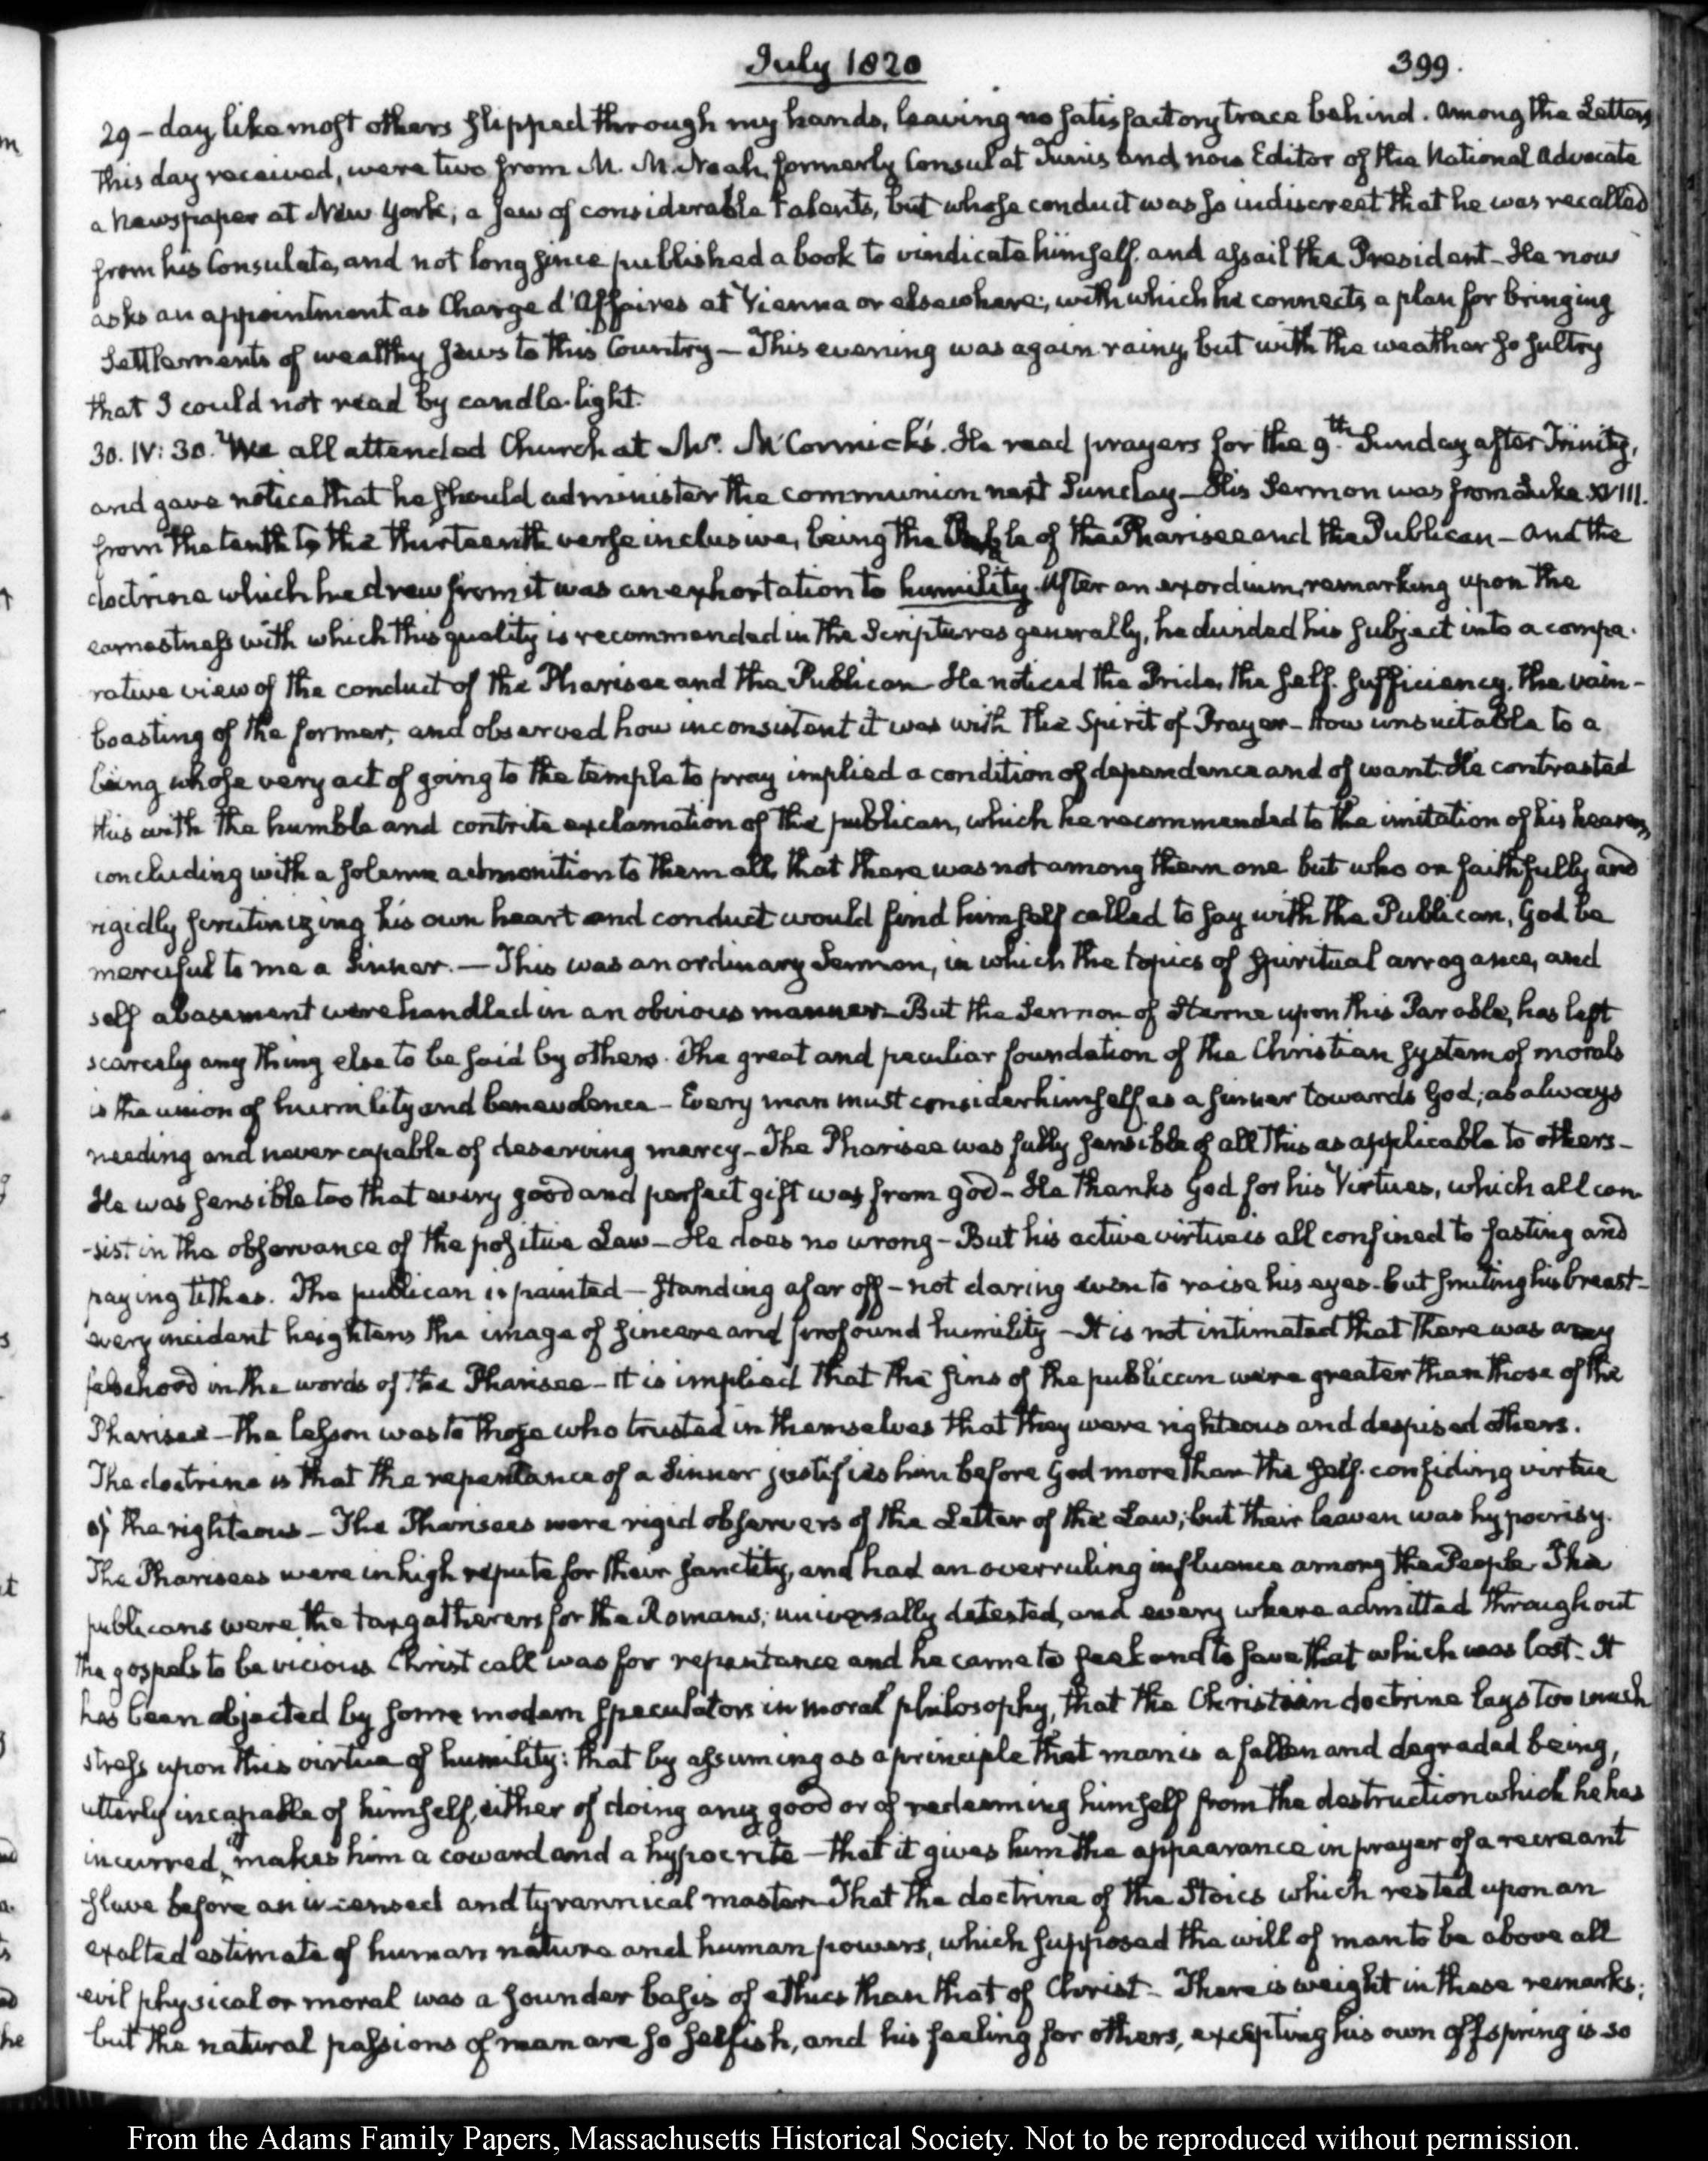 July 1820
399.
29 - day, like most others slipped through my hands, leaving no satisfactory trace behind. Among the Letters
this day received, were two from M. M. Noah, formerly Consul at Tunis and now Editor of the National Advocate
a Newspaper at New York; a Jew of considerable talents, but whose conduct was so indiscreet that he was recalled
from his Consulate, and not long since published a book to vindicate himself, and assail the President - He now
asks an appointment as Charge d'Affaires at Vienna or elsewhere; with which he connects a plan for bringing
Settlements of wealthy Jews to this Country - This evening was again rainy, but with the weather so sultry
that I could not read by candle-light.
30. IV: 30. We all attended Church at Mr. McCormick's. He read prayers for the 9th Sunday after Trinity,
and gave notice that he should administer the communion next Sunday - His Sermon was from Luke XVIII.
from the tenth to the thirteenth verse inclusive, being the Parable of the Pharisee and the Publican - And the
doctrine which he drew from it was an exhortation to humility. After an exordium, remarking upon the
earnestness with which this quality is recommended in the Scriptures generally, he divided his subject into a compa-
rative view of the conduct of the Pharisee and the Publican - He noticed the Pride, the self-sufficiency, the vain-
boasting of the former, and observed how inconsistent it was with the Spirit of Prayer - How unsuitable to a
being whose very act of going to the temple to pray implied a condition of dependence and of want. He contrasted
this with the humble and contrite exclamation of the publican, which he recommended to the imitation of his hearers,
concluding with a solemn admonition to them all, that there was not among them one but who on faithfully and
rigidly scrutinizing his own heart and conduct would find himself called to say with the Publican, God be
merciful to me a Sinner. - This was an ordinary Sermon, in which the topics of spiritual arrogance, and
self abasement were handled in an obvious manner - But the Sermon of Sterne upon this Parable, has left
scarcely any thing else to be said by others. The great and peculiar foundation of the Christian system of morals
is the union of humility and benevolence - Every man must consider himself as a sinner towards God; as always
needing and never capable of deserving mercy - The Pharisee was fully sensible of all this as applicable to others -
He was sensible too that every good and perfect gift was from god - He thanks God for his Virtues, which all con-
-sist in the observance of the positive Law - He does no wrong - But his active virtue is all confined to fasting and
paying tithes. The publican is painted - standing afar off - not daring even to raise his eyes - but smiting his breast -
every incident heightens the image of sincere and profound humility - It is not intimated that there was any
falsehood in the words of the Pharisee - it is implied that the sins of the publican were greater than those of the
Pharisee - the lesson was to those who trusted in themselves that they were righteous and despised others.
The doctrine is that the repentance of a Sinner justifies him before God more than the self-confiding virtue
of the righteous - The Pharisees were rigid observers of the Letter of the Law; but their leaven was hypocrisy.
The Pharisees were in high repute for their sanctity, and had an overruling influence among the People. The
publicans were the taxgatherers for the Romans; universally detested, and every where admitted throughout
the gospels to be vicious. Christ call was for repentance and he came to seek and to save that which was lost - It
has been objected by some modern speculators in moral philosophy, that the Christian doctrine lays too much
stress upon this virtue of humility: that by assuming as a principle that man is a fallen and degraded being,
utterly incapable of himself, either of doing any good or of redeeming himself from the destruction which he has
incurred, makes him a coward and a hypocrite - that it gives him the appearance in prayer of a recreant
slave before an incensed and tyrannical master - That the doctrine of the Stoics which rested upon an
exalted estimate of human nature and human powers, which supposed the will of man to be above all
evil physical or moral was a sounder basis of ethics than that of Christ - There is weight in these remarks;
but the natural passions of man are so selfish, and his feeling for others, excepting his own offspring is so
From the Adams Family Papers, Massachusetts Historical Society. Not to be reproduced without permission.